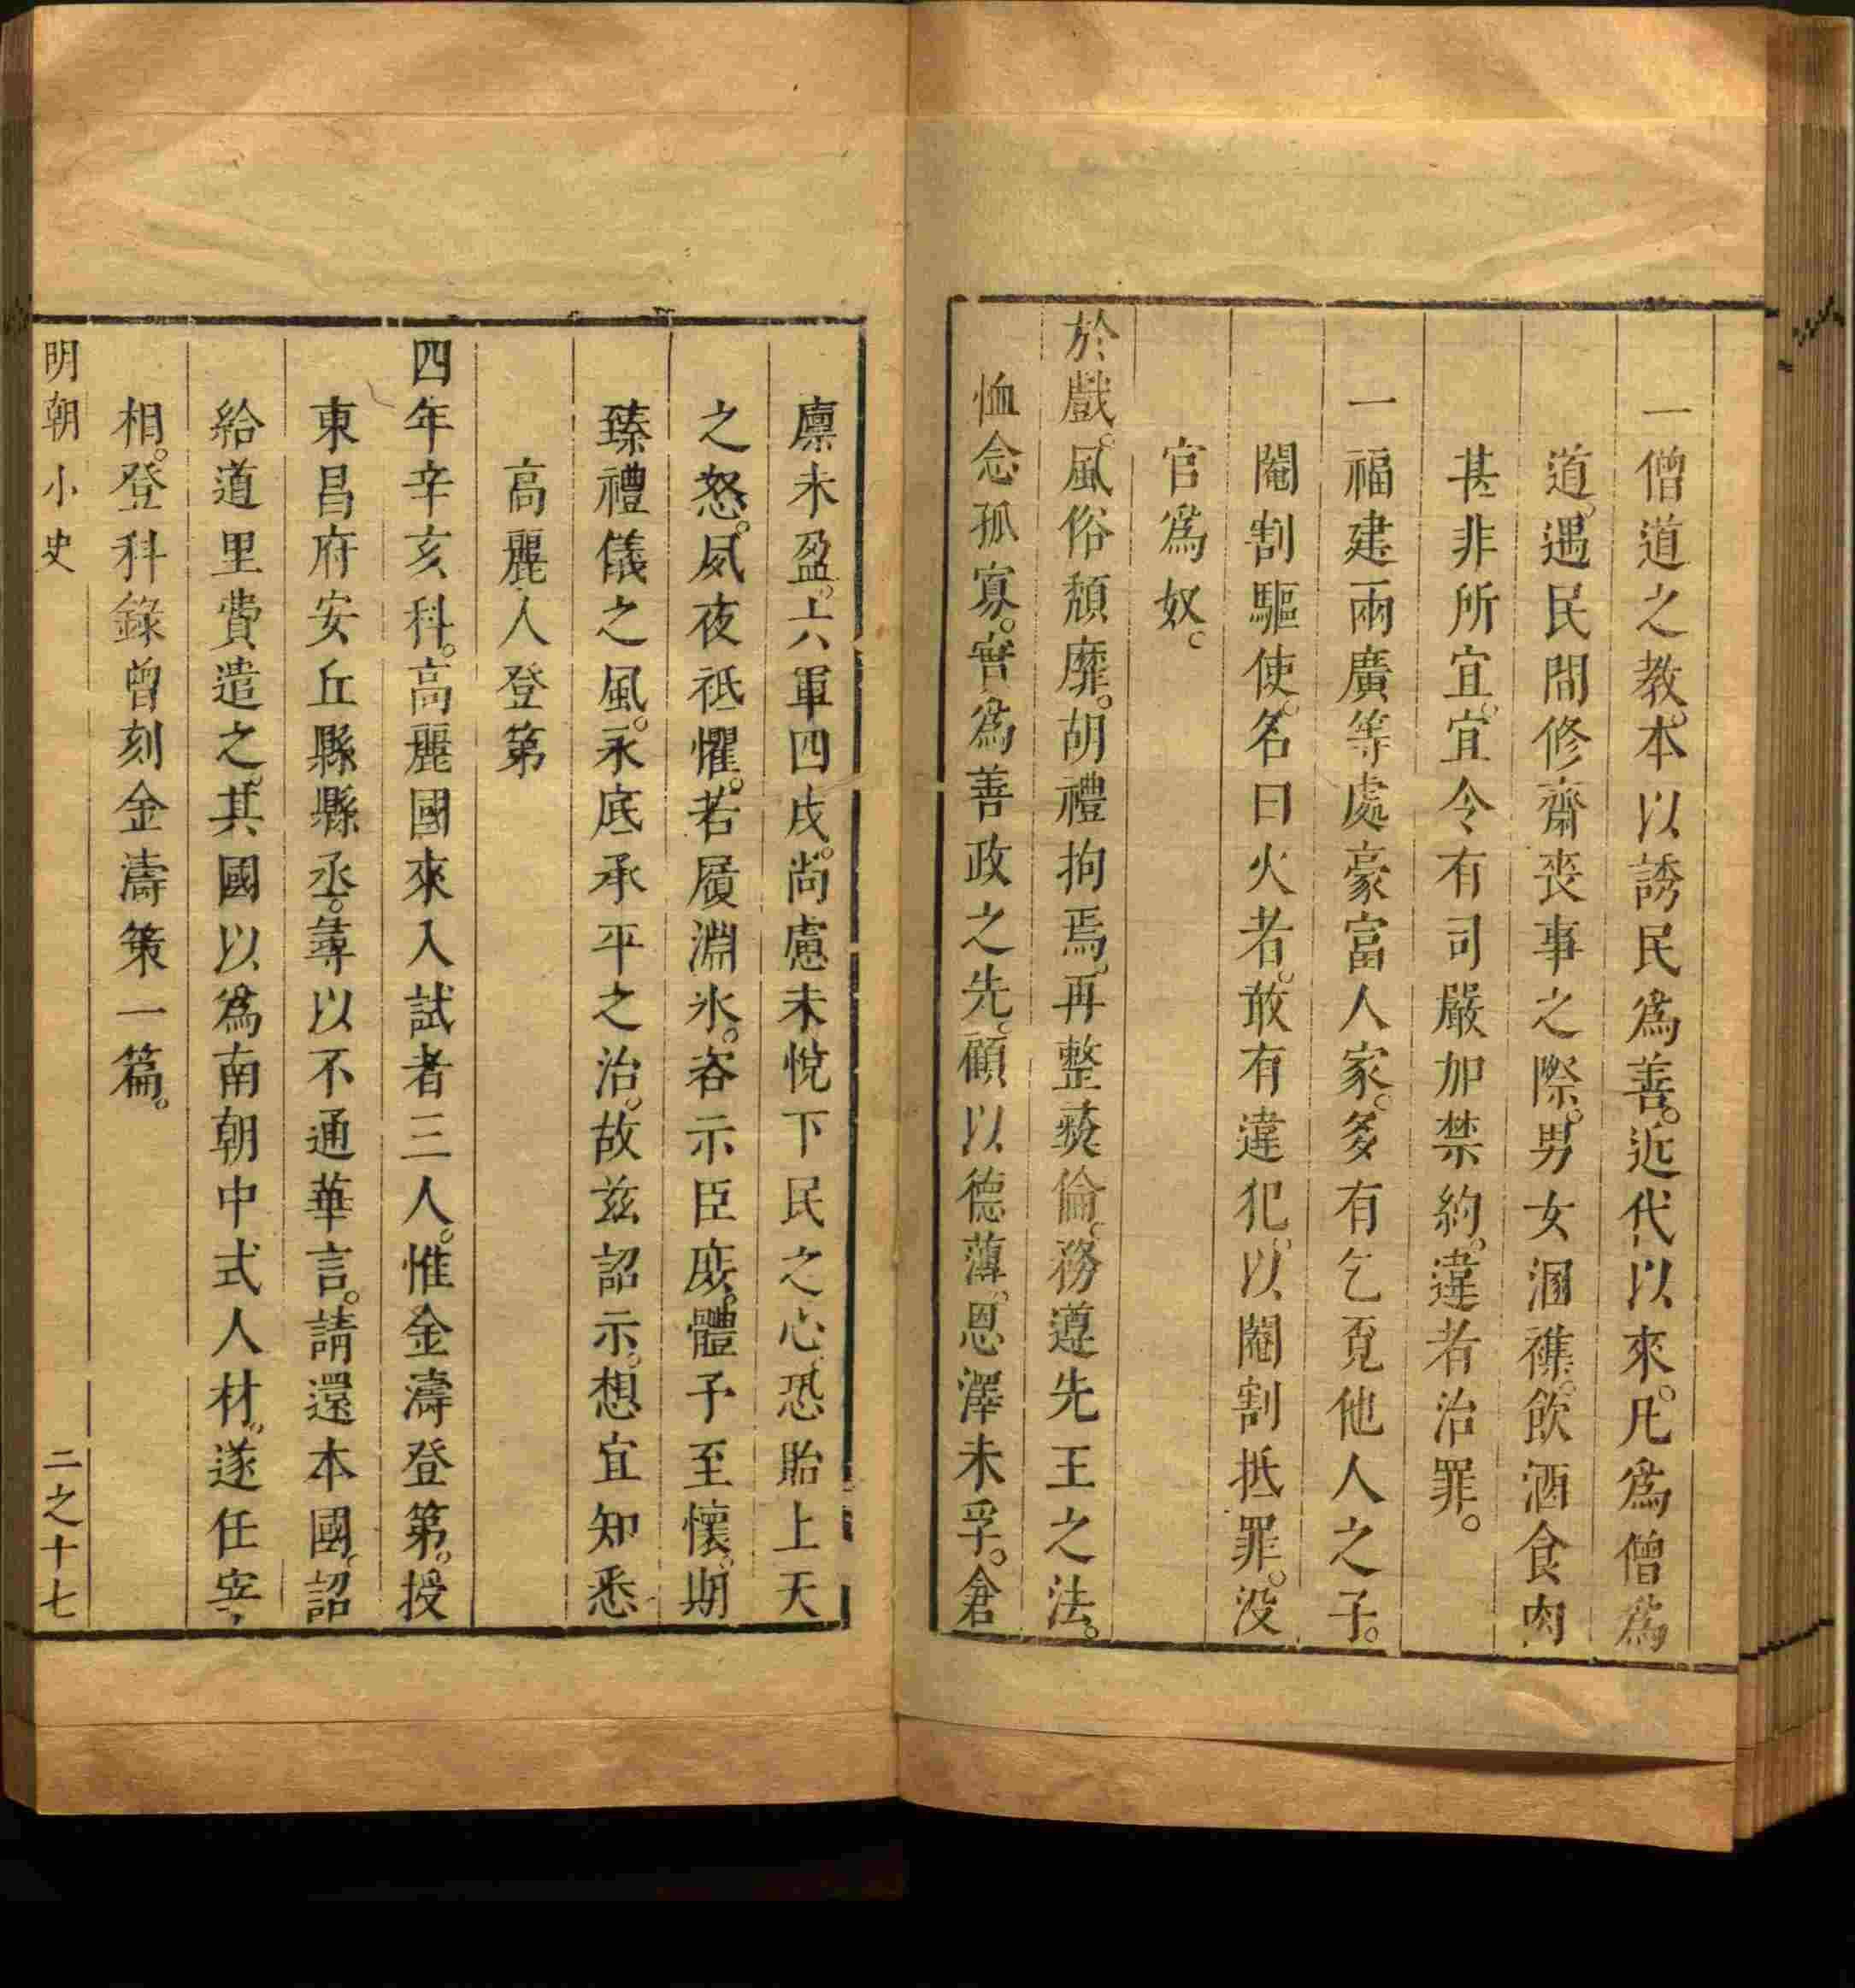 一僧道之教。本以誘民爲善。近代以來。凡爲僧爲
道。遇民間修齋喪事之際。男女溷襍。飲酒食肉
甚非所宜。宜令有司嚴加禁約。違者治罪。
一福建兩廣等處豪富人家。多有乞覓他人之子。
閹割驅使。名曰火者。敢有違犯。以閹割抵罪。没
官爲奴。
於戲。風俗頽靡。胡禮拘焉。再整彛倫。務遵先王之法。
恤念孤寡。實爲善政之先。顧以德薄。恩澤未孚。倉
廪未盈。六軍四戍。尚慮未悅下民之心。恐貽上天
之怒。夙夜祇懼。若履淵氷。咨示臣庶。體予至懷。期
臻禮儀之風。永底承平之治。故兹詔示。想宜知悉
高麗人登第
四年辛亥科。高麗國來入試者三人。惟金濤登第。授
東昌府安丘縣縣丞。尋以不通華言。請還本國。詔
給道里費遣之。其國以爲南朝中式人材。遂任宰
相。登科錄曾刻金濤策一篇。
明朝小史
二之十七